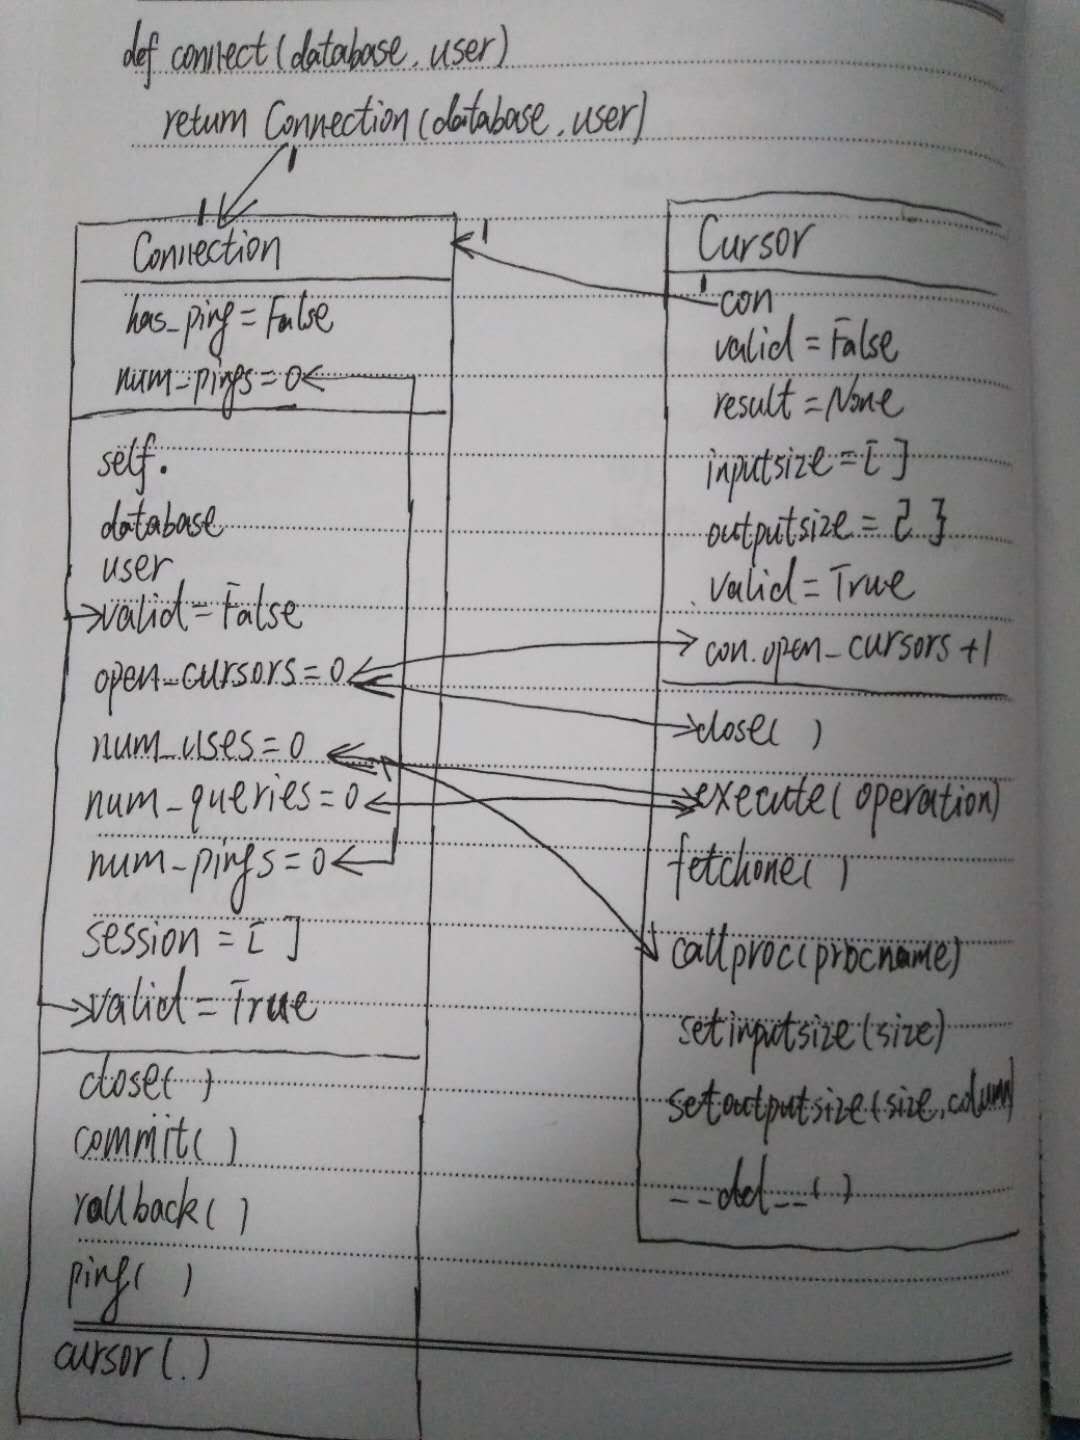 def connect(database, user)
return Connection(database, user)
Connection
has_ping = False
num_pings = 0
self.
database
user
valid = False
open_cursors = 0
num_uses = 0
num_queries = 0
num_pings = 0
session = [ ]
valid = True
close( )
commit( )
rollback( )
ping( )
cursor(.)
Cursor
con
valid = False
result = None
inputsize = [ ]
outputsize = { }
valid = True
con.open_cursors +1
close( )
execute( operation)
fetchone( )
callproc(procname)
setinputsize(size)
setoutputsize(size, column)
__del__( )